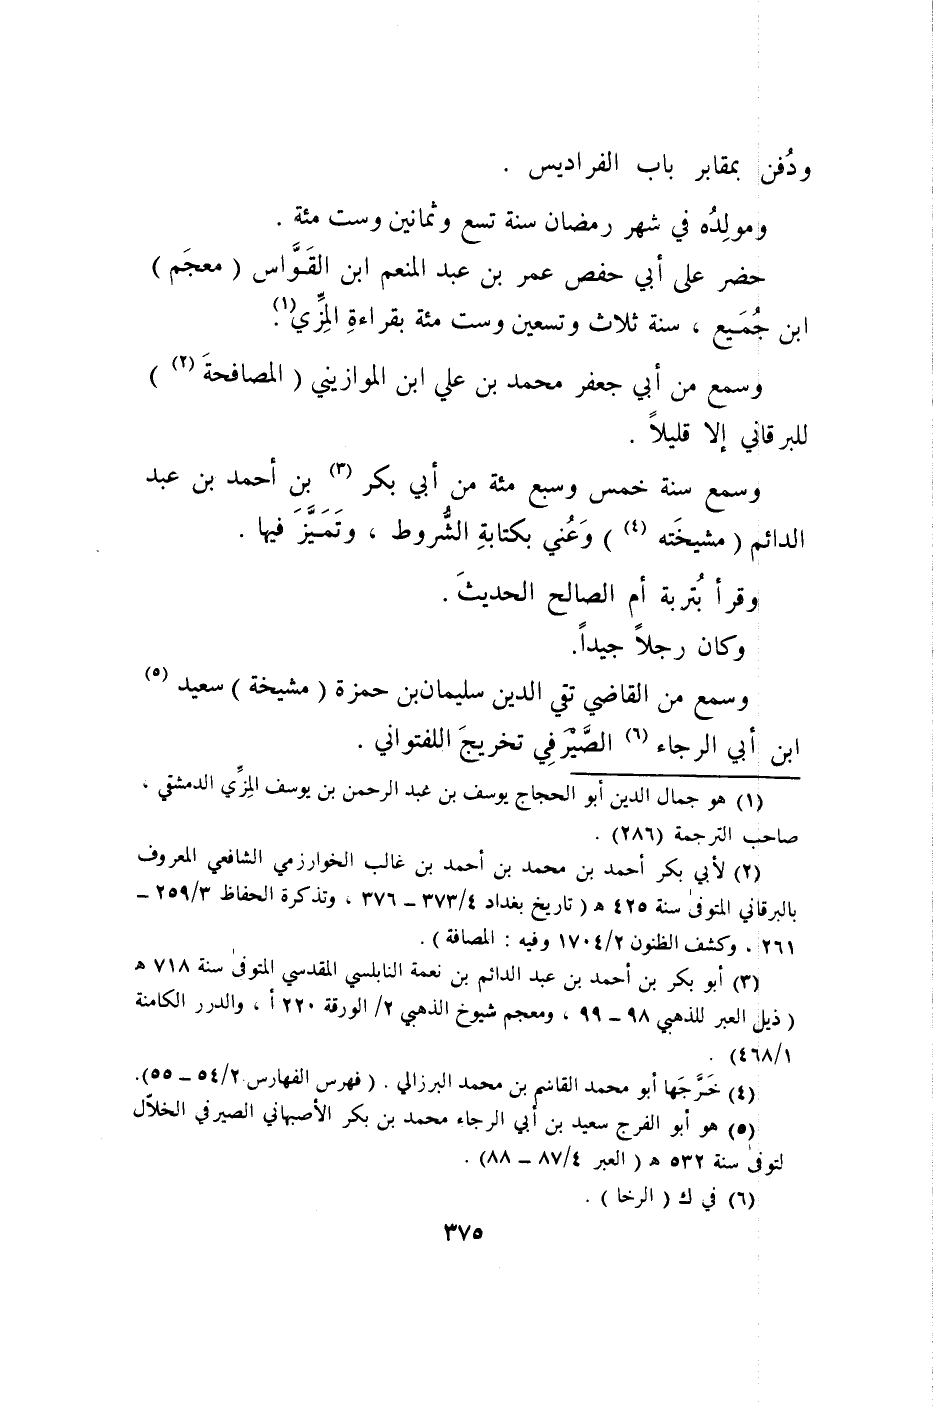 ودُفن بمقابر باب الفراديس .
ومولِدُه في شهر رمضان سنة تسع وثمانين وست مئة .
حضر على أبي حفص عمر بن عبد المنعم ابن القَوَّاس ( معجَم )
ابن جُمَيع ، سنة ثلاث وتسعين وست مئة بقراءةِ المِزِّي(١).
وسمع من أبي جعفر محمد بن علي ابن الموازيني ( المصافحةَ (٢) )
للبرقاني إلا قليلاً .
وسمع سنة خمس وسبع مئة من أبي بكر (٣) بن أحمد بن عبد
الدائم ( مشيخَته (٤) ) وَعُني بكتابةِ الشُّروط ، وتَمَيَّزَ فيها .
وقرأ بُتربة أم الصالح الحديثَ .
وكان رجلاً جيداً.
وسمع من القاضي تقي الدين سليمان بن حمزة ( مشيخة ) سعيد (٥)
ابن أبي الرجاء (٦) الصَّيْرَفِي تخريجَ اللفتواني .
(١) هو جمال الدين أبو الحجاج يوسف بن عبد الرحمن بن يوسف المِزِّي الدمشقي ،
صاحب الترجمة (٢٨٦) .
(٢) لأبي بكر أحمد بن محمد بن أحمد بن غالب الخوارزمي الشافعي المعروف
بالبرقاني المتوفىٰ سنة ٤٢٥ هـ ( تاريخ بغداد ٣٧٣/٤ ــ ٣٧٦ ، وتذكرة الحفاظ ٢٥٩/٣ ــ
٢٦١ . وكشف الظنون ١٧٠٤/٢ وفيه : المصافة ) .
(٣) أبو بكر بن أحمد بن عبد الدائم بن نعمة النابلسي المقدسي المتوفىٰ سنة ٧١٨ هـ
( ذيل العبر للذهبي ٩٨ ــ ٩٩ ، ومعجم شيوخ الذهبي ٢/ الورقة ٢٢٠ أ ، والدرر الكامنة
٤٦٨/١) .
(٤) خَرَّجَها أبو محمد القاسم بن محمد البرزالي . ( فهرس الفهارس ٥٤/٢ ــ ٥٥).
(٥) هو أبو الفرج سعيد بن أبي الرجاء محمد بن بكر الأصبهاني الصيرفي الخلاّل
لتوفىٰ سنة ٥٣٢ هـ ( العبر ٨٧/٤ ــ ٨٨) .
(٦) في ك ( الرخا ) .
٣٧٥